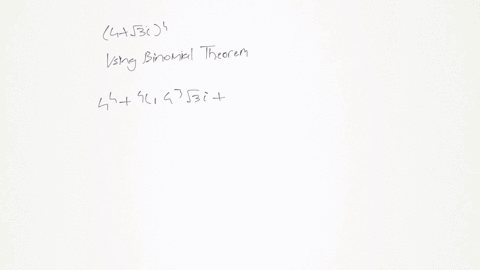 (4+√3i)⁴
Using Binomial Theorem
4⁴ + ⁴C₁ 4³ √3i +